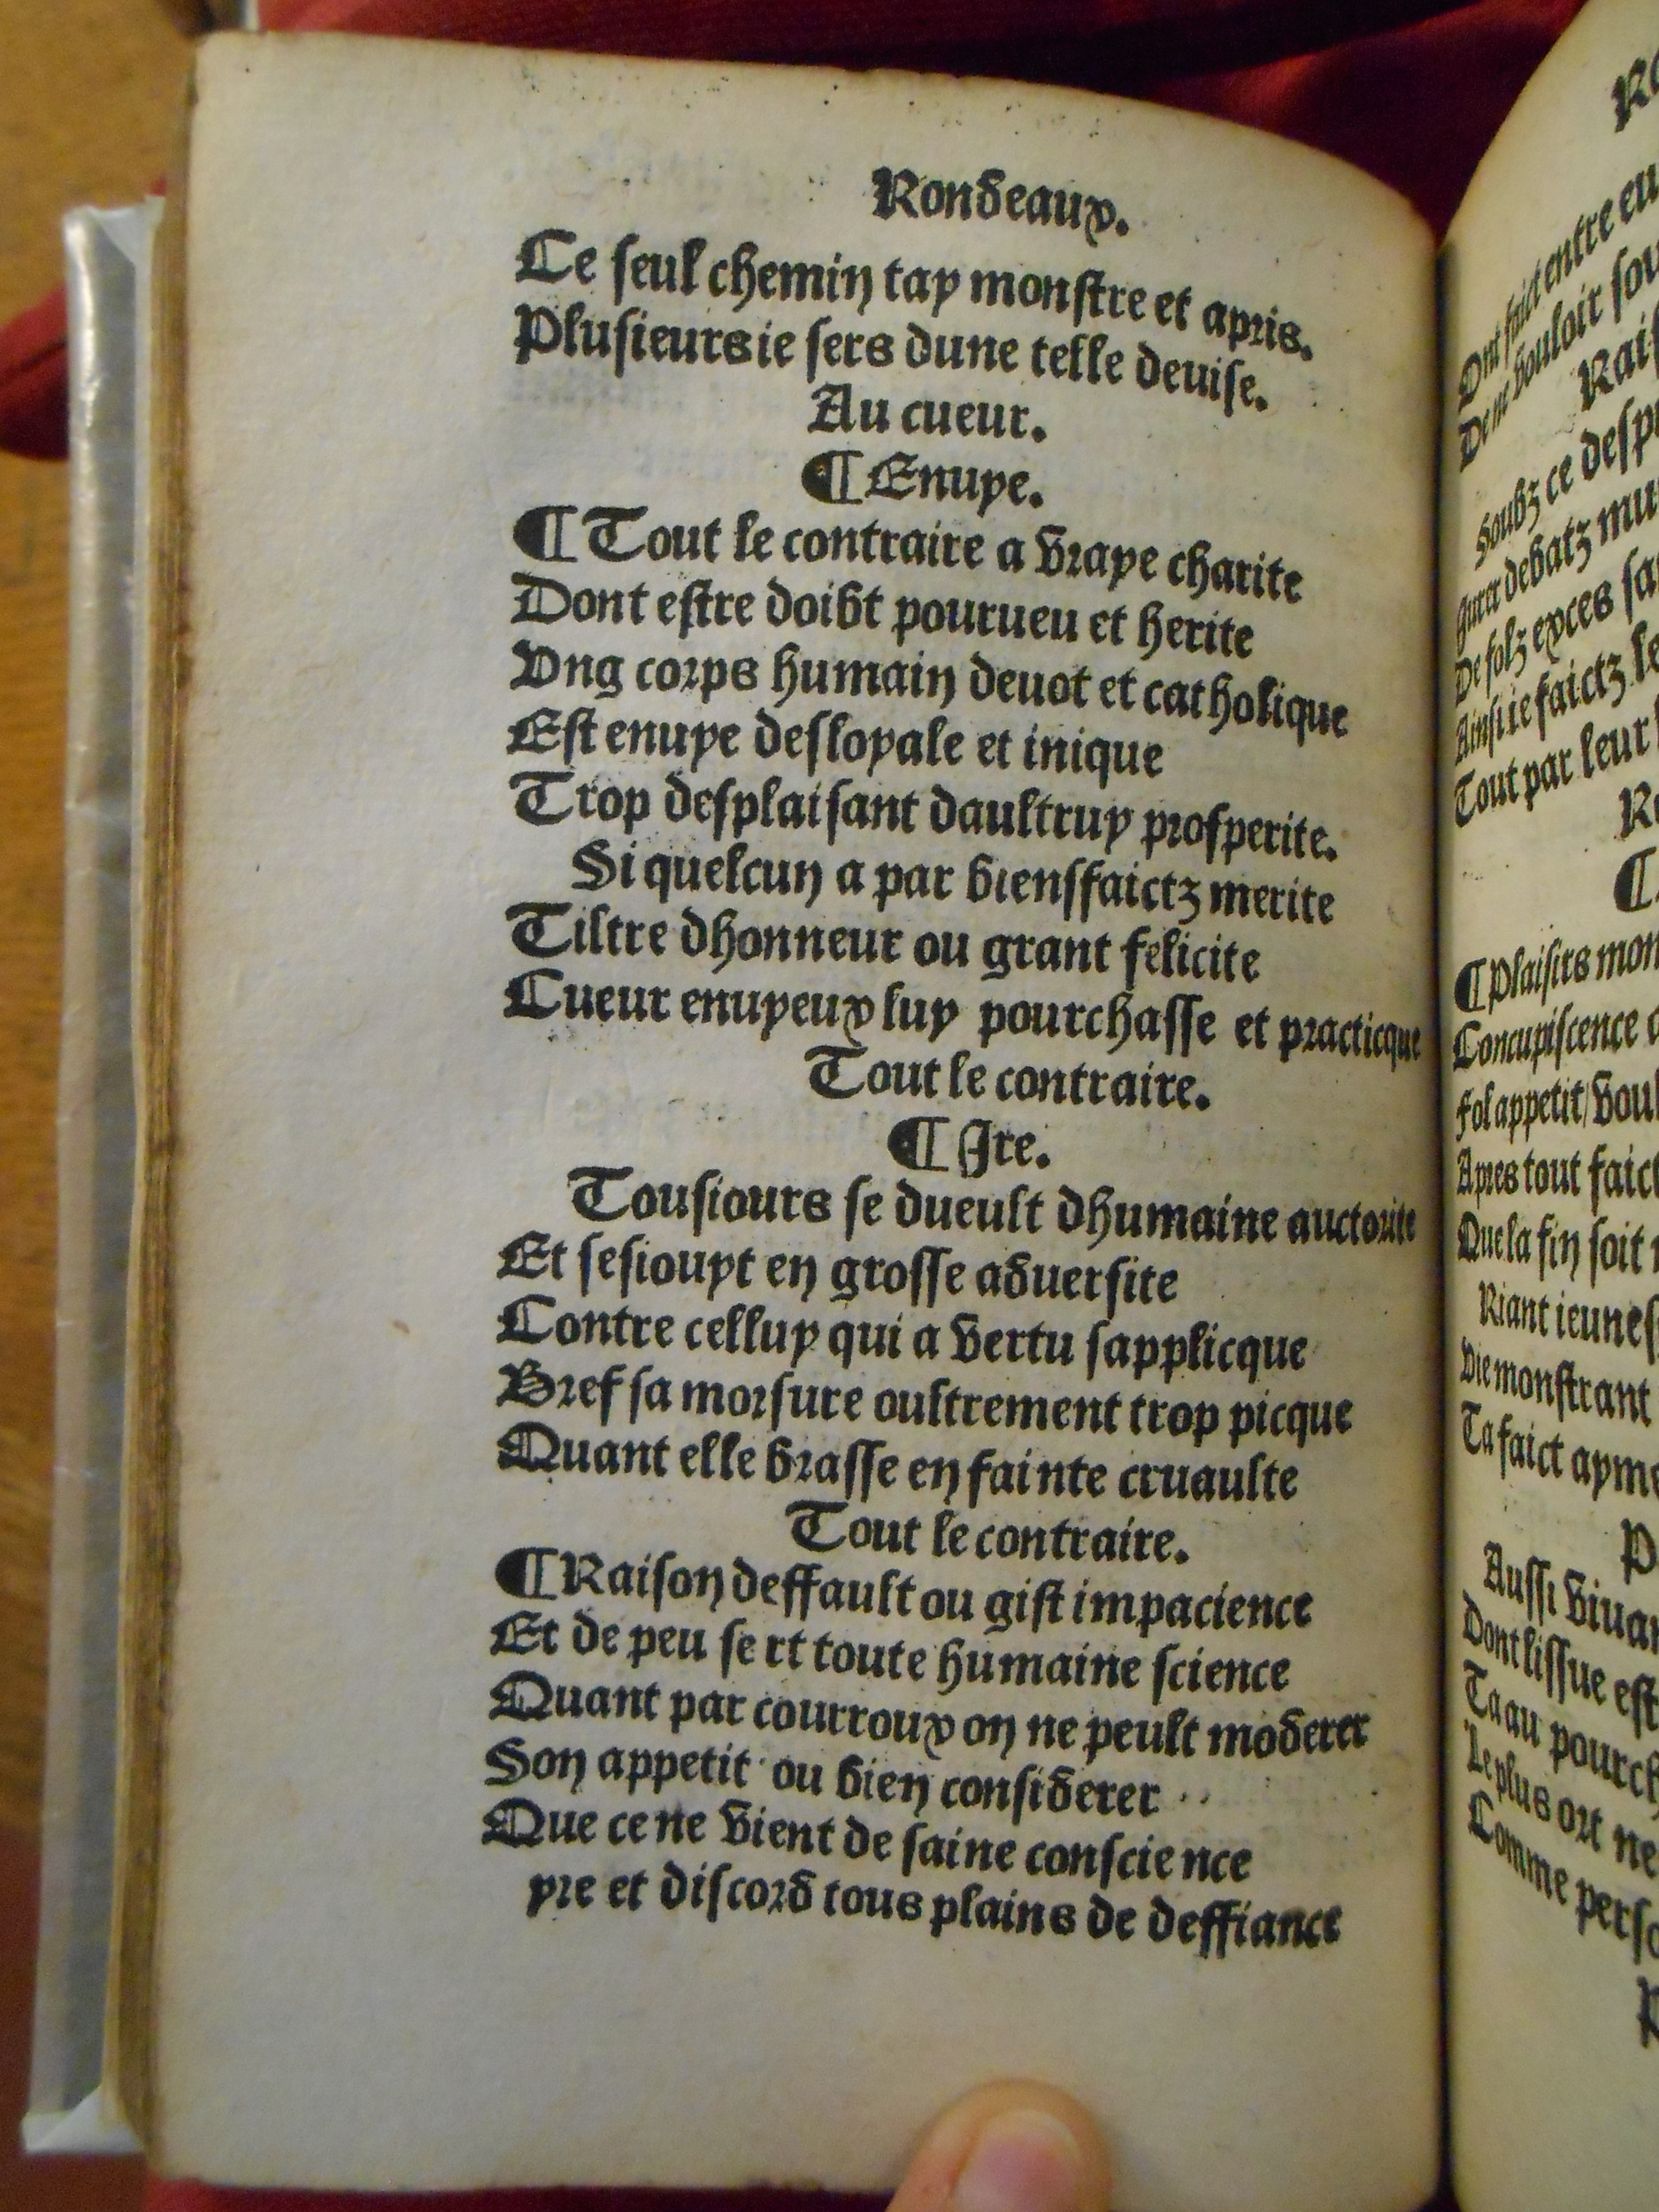 Rondeaux.
Ce seul chemin tay monstre et apris.
Plusieurs ie sers dune telle deuise.
Au cueur.
¶ Enuye.
¶ Tout le contraire a vraye charite
Dont estre doibt pourueu et herite
Vng corps humain deuot et catholique
Est enuye desloyale et inique
Trop desplaisant daultruy prosperite.
Si quelcun a par biensfaictz merite
Tiltre dhonneur ou grant felicite
Cueur enuyeux luy pourchasse et practicque
Tout le contraire.
¶ Ire.
Tousiours se dueult dhumaine auctorite
Et sesiouyt en grosse aduersite
Contre celluy qui a vertu sapplicque
Bref sa morsure oultrement trop picque
Quant elle brasse en fainte cruaulte
Tout le contraire.
¶ Raison deffault ou gist impacience
Et de peu sert toute humaine science
Quant par courroux on ne peult moderer
Son appetit ou bien considerer
Que ce ne vient de saine conscience
yre et discord tous plains de deffiance
Dnt faict entre eu
De ne vouloir sou
Soubz ce desp
De folz exces sa
Ainsi ie faictz le
Tout par leur
¶ Plaisirs mon
Concupiscence
Fol appetit/ voul
Apres tout faict
Que la fin soit
Riant ieunes
Vie monstrant
Ta faict ayme
Aussi viuan
Dont lissue est
Ta au pourch
Le plus ort ne
Comme perso